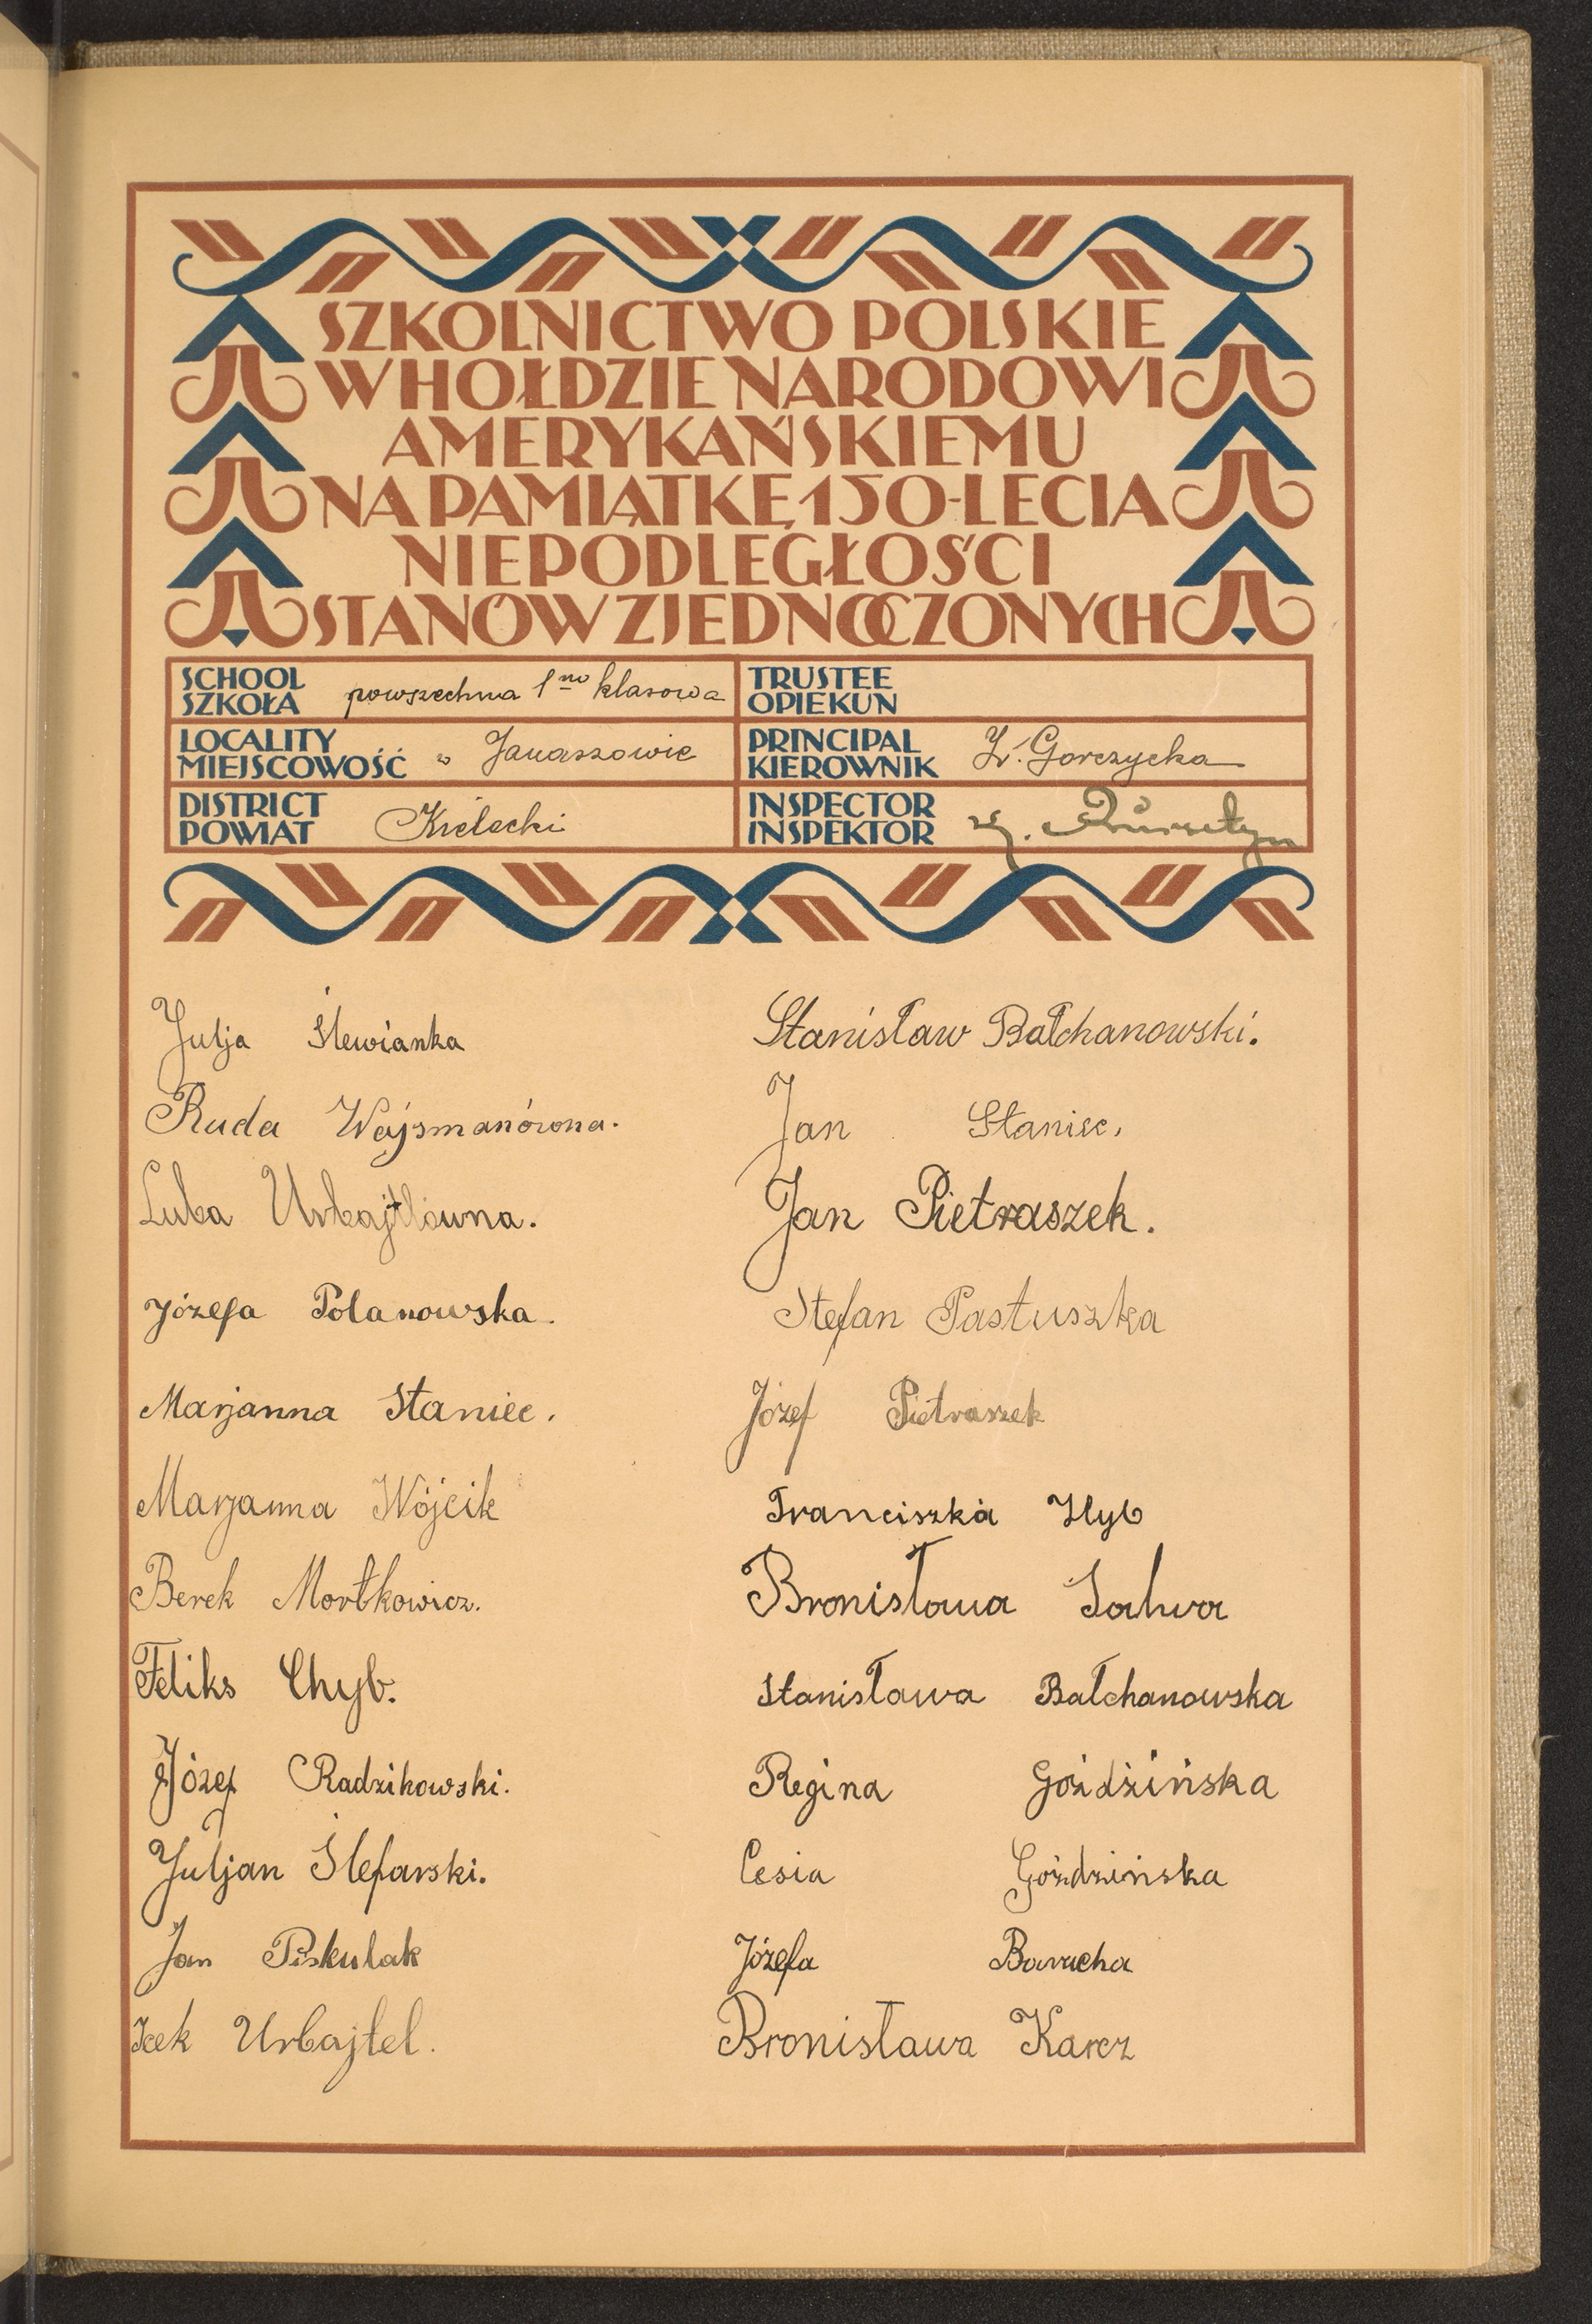 SZKOLNICTWO POLSKIE
W HOŁDZIE NARODOWI
AMERYKAŃSKIEMU
NA PAMIĄTKĘ 150-LECIA
NIEPODLEGŁOŚCI
STANÓW ZJEDNOCZONYCH
SCHOOL
SZKOŁA powszechna 1no klasowa
TRUSTEE
OPIEKUN
LOCALITY
MIEJSCOWOŚĆ w Janaszowie
PRINCIPAL
KIEROWNIK Z. Gorczycka
DISTRICT
POWIAT Kielecki
INSPECTOR
INSPEKTOR
Julja Ślewianka
Ruda Wajsmanówna.
Luba Urbajtlówna.
Józefa Polanowska.
Marjanna Staniec.
Marjanna Wójcik
Berek Mortkowicz.
Feliks Chyb.
Józef Radzikowski.
Juljan Ślefarski.
Jan Piskulak
Icek Urbajtel.
Stanisław Bałchanowski.
Jan Staniec,
Jan Pietraszek.
Stefan Pastuszka
Józef Pietraszek
Franciszka Hyb
Bronisława Salwa
Stanisława Bałchanowska
Regina Goździńska
Cesia Goździńska
Józefa Barucha
Bronisława Karcz